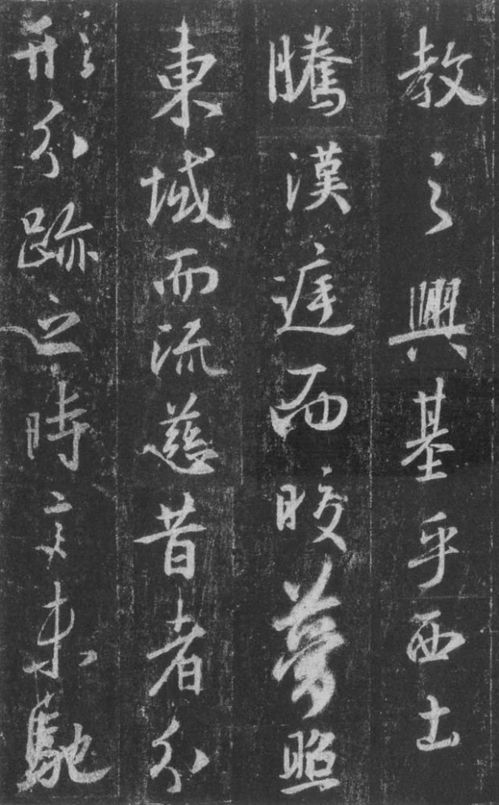 教之興基乎西土
騰漢庭而皎夢照
東域而流慈昔者分
形分跡之時言未馳